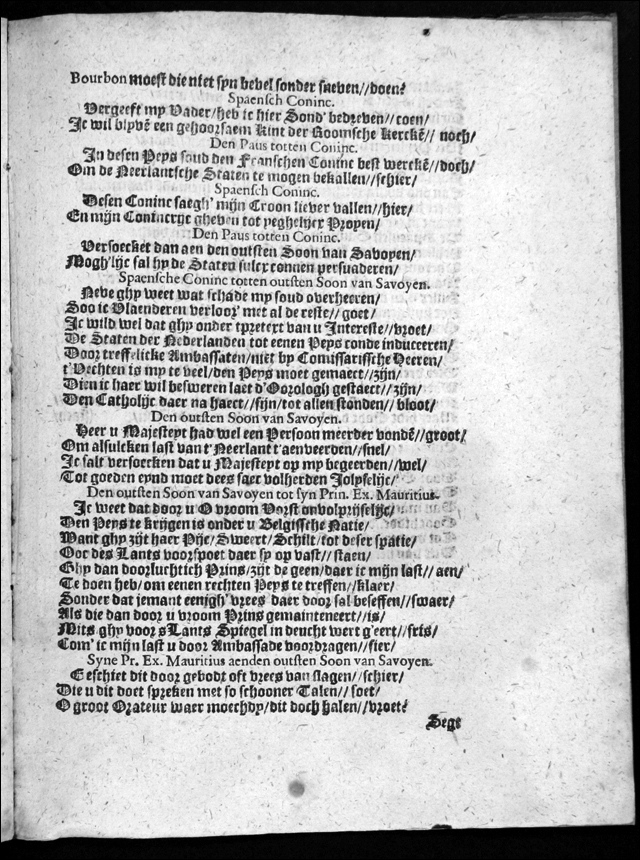 Bourbon moest die niet syn bevel sonder sneven//doen?
Spaensch Coninc.
Vergeeft my Vader/heb ic hier Sond' bedreven//coen/
Ic wil blyvē een gehoorsaem kint der Roomsche Kerckē// noch/
Den Paus totten Coninc.
In desen Peys soud den Franschen Coninc best werckē//doch/
Om de Neerlantsche Staten te mogen bekallen//schier/
Spaensch Coninc.
Desen Coninc saegh' mijn Croon liever vallen//hier/
En mijn Conincrijc gheven tot yeghelijcx Proyen/
Den Paus totten Coninc.
Versoecket dan aen den outsten Soon van Savoyen/
Mogh'lijc sal hy de Staten sulcx connen persuaderen/
Spaensche Coninc totten outsten Soon van Savoyen.
Neve ghy weet wat schade my soud overheeren/
Soo ic Vlaenderen verloor' met al de reste// goet/
Ic wild wel dat ghy onder tpretext van u Intereste//vroet/
De Staten der Nederlanden tot eenen Peys conde induceren/
Door treffelicke Ambassaten/niet by Comissarissche Heeren/
t'Vechten is my te veel/den Peys moet gemaect//zijn/
Dien ic haer wil besweren laet d'Oorologh gestaect//zijn/
Den Catholijc daer na haect//fijn/tot allen stonden// bloot/
Den outsten Soon van Savoyen.
Heer u Majesteyt had wel een Persoon meerder vondē//groot/
Om alsulcken last van t'Neerlant t'aenveerden//snel/
Ic salt versoecken dat u Majesteyt op my begeerden//wel/
Tot goeden eynd moet dees saec volherden Jolyselijc/
Den outsten Soon van Savoyen tot syn Prin. Ex. Mauritius.
Ic weet dat door u O vroom Vorst onvolprijselijc/
Den Peys te krijgen is onder u Belgissche Natie/
Want ghy zijt haer Pijc/Sweert/Schilt/tot deser spatie/
Ooc des Lants voorspoet daer sy op vast// staen/
Ghy dan doorluchtich Prins/zijt de geen/daer ic mijn last// aen/
Te doen heb/om eenen rechten Peys te treffen//klaer/
Sonder dat jemant eenigh' vrees daer door sal beseffen//swaer/
Als die dan door u vroom Prins gemainteneert//is/
Mits ghy voor sLants Spiegel in deucht wert g'eert//fris/
Com' ic mijn last u door Ambassade voordragen//fier/
Syne Pr. Ex. Mauritius aenden outsten Soon van Savoyen.
Geschiet dit door gebodt oft vrees van slagen//schier/
Die u dit doet spreken met so schooner Talen// soet/
O groot Orateur waer moechdy/dit doch halen//vroet?
Segt